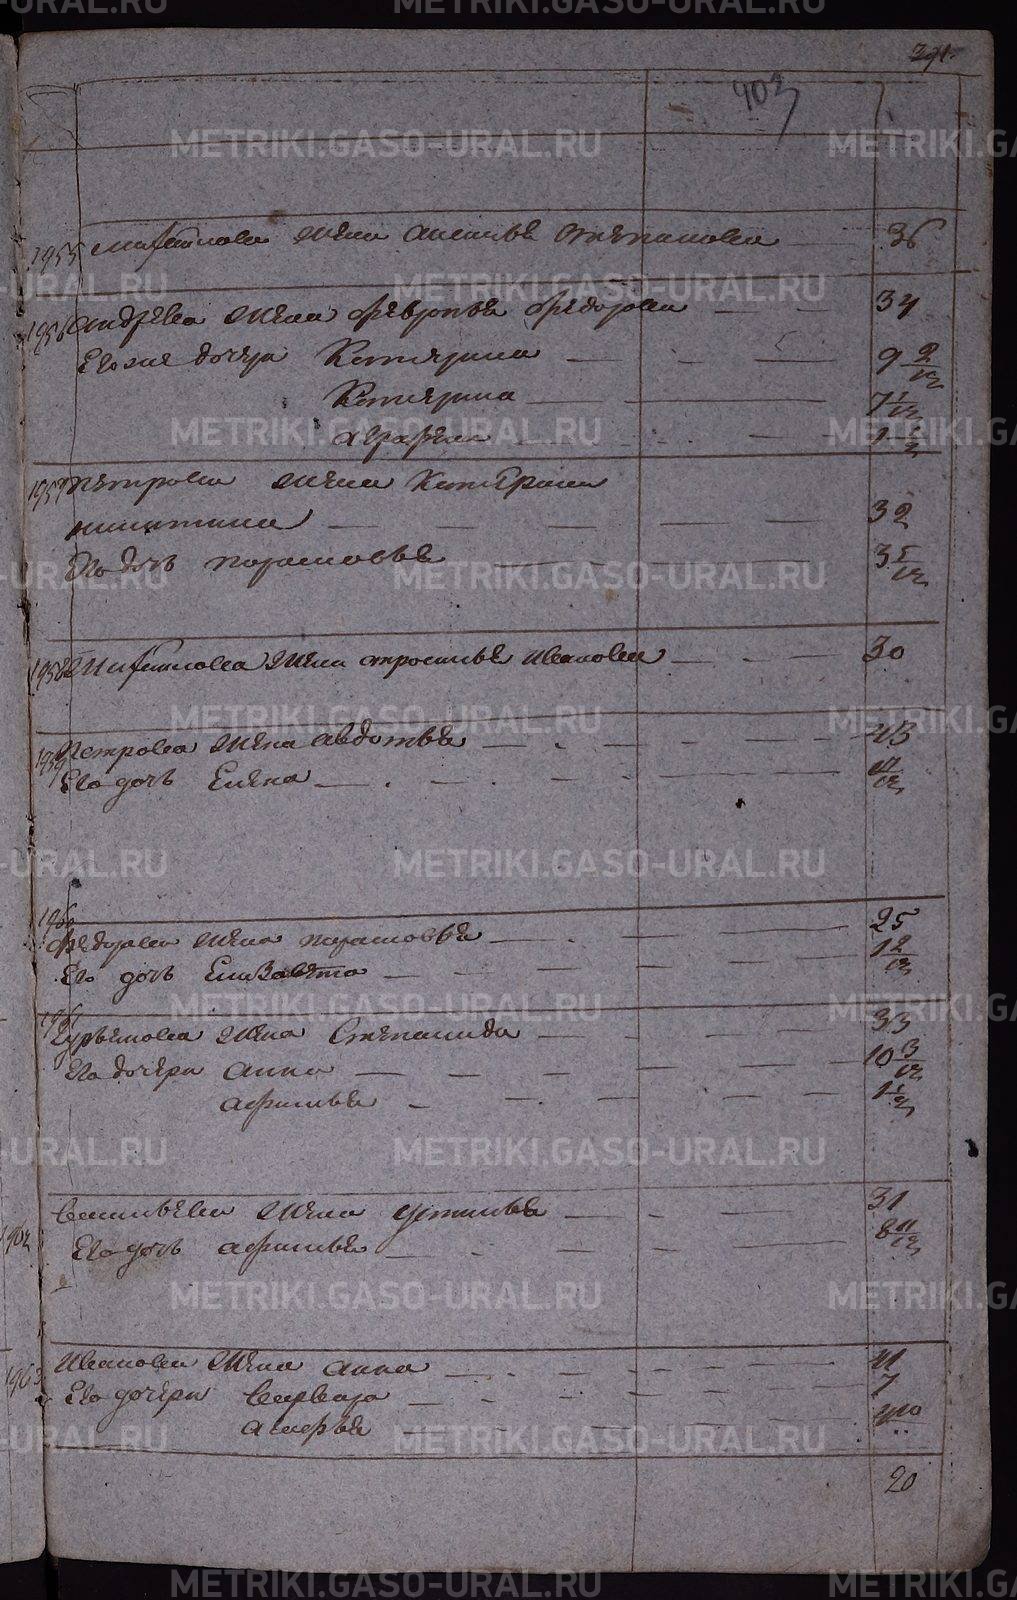 391.
403
1955 Мартинова жена Аксинье Степанова 36
1956 Андреева жена Февронье Федорова 34
Его же дочери Катерина 9 2/12
Катерина 7 1/12
Аграфена 1 1/2
1957 Петрова жена Катерина
Никитина 32
Его дочь Парасковье 3 5/12
1958 жена Иванова 30
1959 Петрова жена Авдотье 43
Его дочь Елена
1960
Федорова жена Парасковье 25
Его дочь Елизавета 1 2/12
1961
Гурьянова жена Степанида 33
Его дочери Анна 10 3/12
Афимье 1 1/2
Васильева жена Устинье 31
1962 Его дочь Афимье 8 11/12
1963 Иванова жена Анна 41
Его дочери Варвара 7
20
METRIKI.GASO-URAL.RU